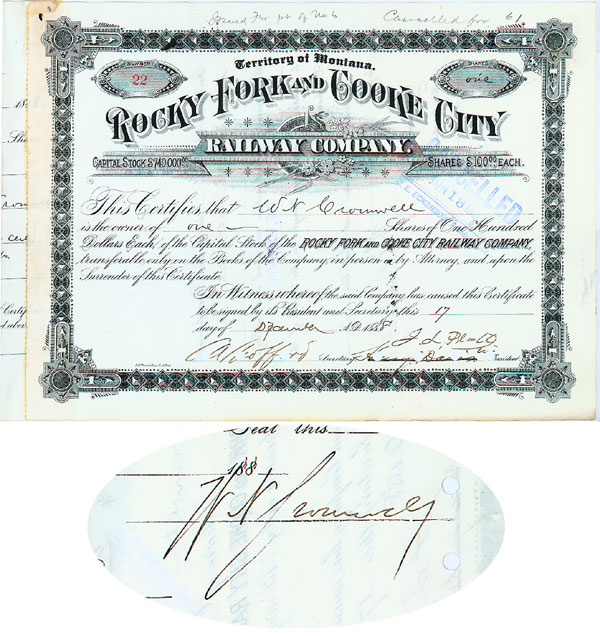 Issued for pt of No 6 Cancelled for 61
Territory of Montana.
NUMBER SHARES
22 one
ROCKY FORK AND COOKE CITY
RAILWAY COMPANY.
CAPITAL STOCK $740,000.00 SHARES $100.00 EACH.
This Certifies that W N Cromwell
is the owner of one Shares of One Hundred
Dollars Each, of the Capital Stock of the ROCKY FORK AND COOKE CITY RAILWAY COMPANY,
transferable only on the Books of the Company, in person or by Attorney, and upon the
Surrender of this Certificate.
In Witness whereof the said Company has caused this Certificate
to be signed by its President and Secretary this 17
day of December A.D. 1888
Secretary President
Seal this
188
W N Cromwell